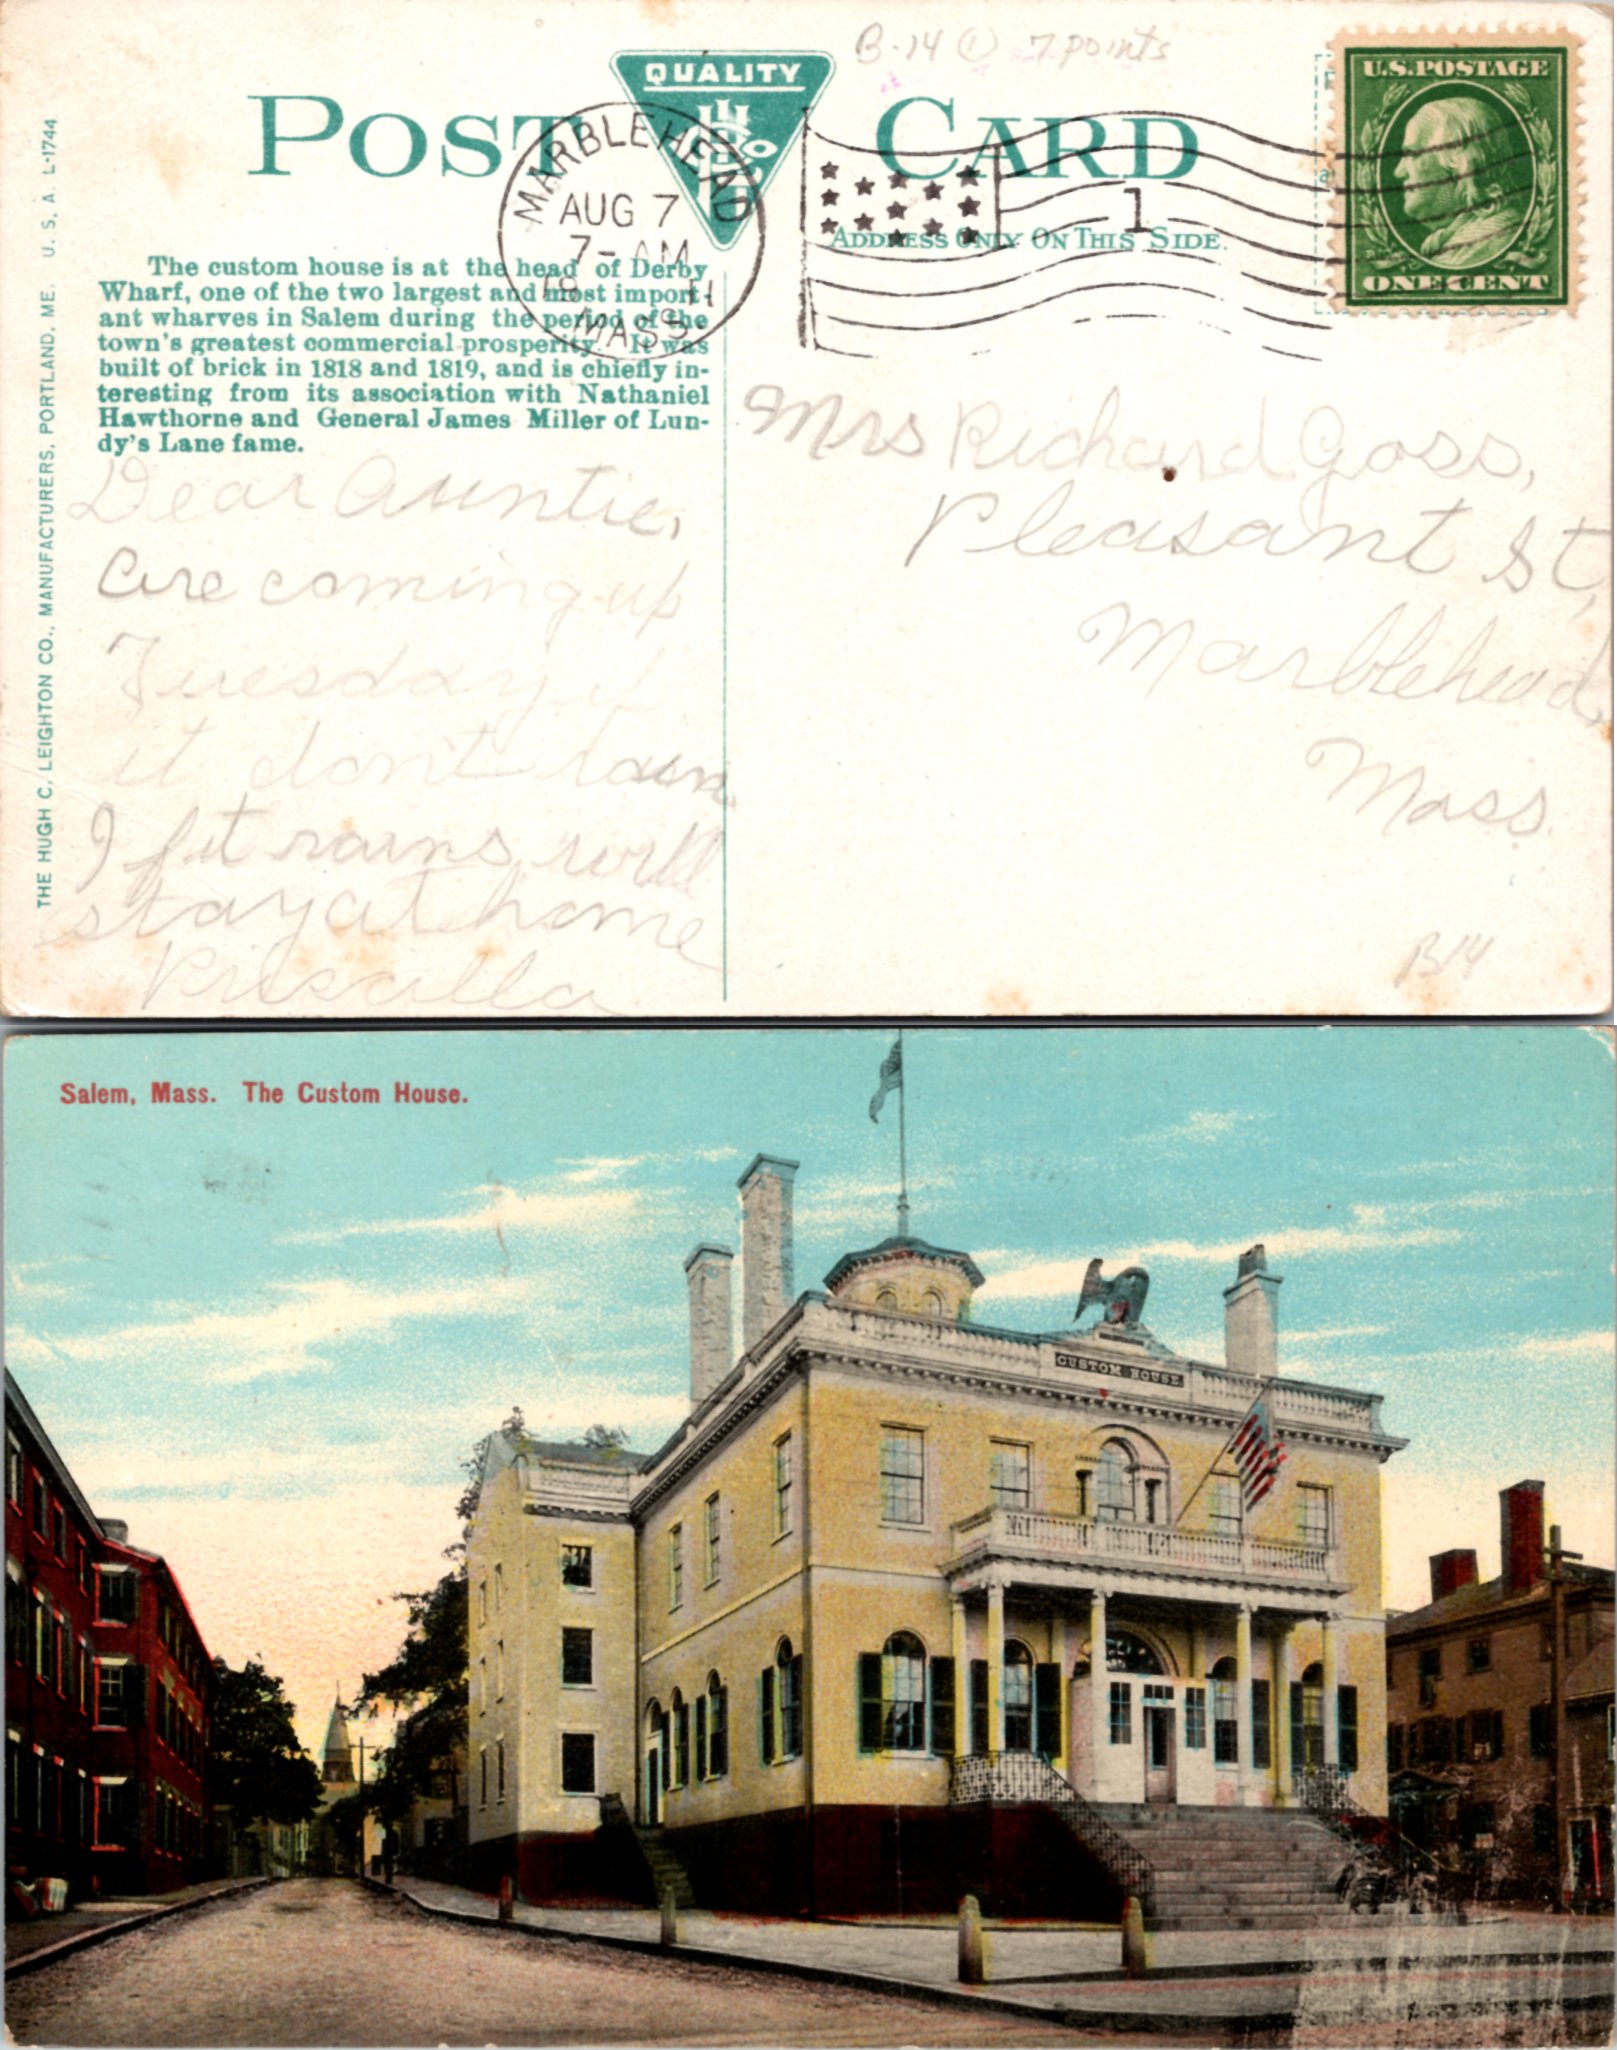 B-14 ① 7 points
QUALITY
POST CARD
MARBLEHEAD
AUG 7
7-AM
19 11
MASS.
1
U.S. POSTAGE
ONE CENT
ADDRESS ONLY ON THIS SIDE.
The custom house is at the head of Derby
Wharf, one of the two largest and most import-
ant wharves in Salem during the period of the
town's greatest commercial prosperity. It was
built of brick in 1818 and 1819, and is chiefly in-
teresting from its association with Nathaniel
Hawthorne and General James Miller of Lun-
dy's Lane fame.
THE HUGH C. LEIGHTON CO., MANUFACTURERS, PORTLAND, ME. U. S. A. L-1744
Dear Auntie,
Are coming up
Tuesday if
it dont rain.
If it rains will
stay at home
Priscilla
Mrs Richard Goss,
Pleasant St,
Marblehead,
Mass.
B14
Salem, Mass. The Custom House.
CUSTOM HOUSE.